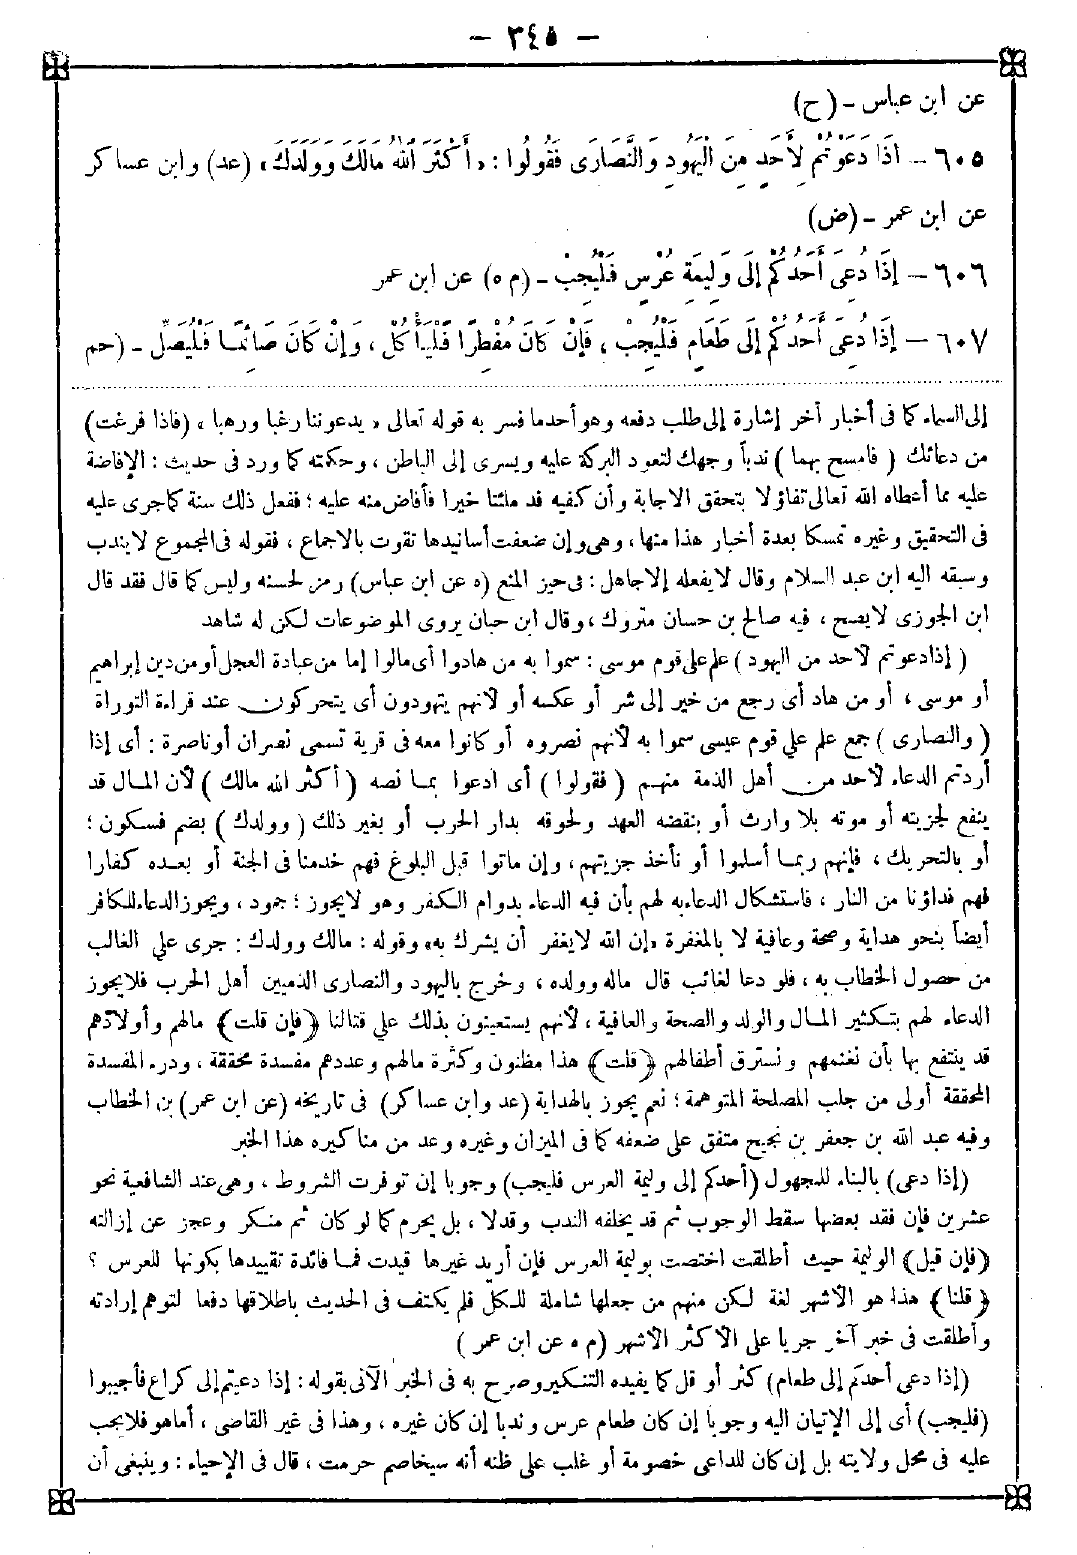 - ٣٤٥ -
عن ابن عباس - (ح)
٦٠٥ - اذَا دَعَوْتُمْ لِأَحَدٍ مِنَ الْيَهُودِ وَالنَّصَارَى فَقُولُوا : «أَكْثَرَ اللّٰهُ مَالَكَ وَوَلَدَكَ» (عد) وابن عساكر
عن ابن عمر - (ض)
٦٠٦ - إذَا دُعِيَ أَحَدُكُمْ إلَى وَلِيمَةِ عُرْسٍ فَلْيُجِبْ - (م ه) عن ابن عمر
٦٠٧ - إذَا دُعِيَ أَحَدُكُمْ إلَى طَعَامٍ فَلْيُجِبْ ، فَإنْ كَانَ مُفْطِرًا فَلْيَأْكُلْ ، وَإنْ كَانَ صَائِمًا فَلْيُصَلِّ - (حم
إلى السماء كما فى أخبار أخر إشارة إلى طلب دفعه وهو أحد ما فسر به قوله تعالى «يدعوننا رغبا ورهبا» (فاذا فرغت)
من دعائك (فامسح بهما) ندباً وجهك لتعود البركة عليه ويسرى إلى الباطن ، وحكمته كما ورد فى حديث : الإفاضة
عليه مما أعطاه الله تعالى تفاؤلا بتحقق الاجابة وأن كفيه قد ملئتا خيرا فأفاض منه عليه ؛ ففعل ذلك سنة كما جرى عليه
فى التحقيق وغيره تمسكا بعدة أخبار هذا منها ، وهى وإن ضعفت أسانيدها تقوت بالاجماع ، فقوله فى المجموع لا يندب
وسبقه اليه ابن عبد السلام وقال لا يفعله إلا جاهل : فى حيز المنع (ه عن ابن عباس) رمز لحسنه وليس كما قال فقد قال
ابن الجوزى لا يصح ، فيه صالح بن حسان متروك ، وقال ابن حبان يروى الموضوعات لكن له شاهد
(إذا دعوتم لأحد من اليهود) علم على قوم موسى : سموا به من هادوا أى مالوا إما من عبادة العجل أو من دين إبراهيم
أو موسى ، أو من هاد أى رجع من خير إلى شر أو عكسه أو لأنهم يتهودون أى يتحركون عند قراءة التوراة
(والنصارى) جمع علم على قوم عيسى سموا به لأنهم نصروه أو كانوا معه فى قرية تسمى نصران أو ناصرة : أى إذا
أردتم الدعاء لأحد من أهل الذمة منهم (فقولوا) أى ادعوا بما نصه (أكثر الله مالك) لأن المال قد
ينفع لجزيته أو موته بلا وارث أو بنقضه العهد ولحوقه بدار الحرب أو بغير ذلك (وولدك) بضم فسكون ؛
أو بالتحريك ، فإنهم ربما أسلموا أو نأخذ جزيتهم ، وإن ماتوا قبل البلوغ فهم خدمنا فى الجنة أو بعده كفارا
فهم فداؤنا من النار ، فاستشكال الدعاء به لهم بأن فيه الدعاء بدوام الكفر وهو لا يجوز ؛ جمود ، ويجوز الدعاء للكافر
أيضاً بنحو هداية وصحة وعافية لا بالمغفرة «إن الله لا يغفر أن يشرك به» وقوله : مالك وولدك : جرى على الغالب
من حصول الخطاب به ، فلو دعا لغائب قال ماله وولده ، وخرج باليهود والنصارى الذميين أهل الحرب فلا يجوز
الدعاء لهم بتكثير المال والولد والصحة والعافية ، لأنهم يستعينون بذلك على قتالنا (فإن قلت) مالهم وأولادهم
قد ينتفع بها بأن نغنمهم ونسترق أطفالهم (قلت) هذا مظنون وكثرة مالهم وعددهم مفسدة محققة ، ودرء المفسدة
المحققة أولى من جلب المصلحة المتوهمة ؛ نعم يجوز بالهداية (عد وابن عساكر) فى تاريخه (عن ابن عمر) بن الخطاب
وفيه عبد الله بن جعفر بن نجيح متفق على ضعفه كما فى الميزان وغيره وعد من مناكيره هذا الخبر
(إذا دعى) بالبناء للمجهول (أحدكم إلى وليمة العرس فليجب) وجوبا إن توفرت الشروط ، وهى عند الشافعية نحو
عشرين فإن فقد بعضها سقط الوجوب ثم قد يخلفه الندب وقد لا ، بل يحرم كما لو كان ثم منكر وعجز عن إزالته
(فإن قيل) الوليمة حيث أطلقت اختصت بوليمة العرس فإن أريد غيرها قيدت فما فائدة تقييدها بكونها للعرس ؟
(قلنا) هذا هو الأشهر لغة لكن منهم من جعلها شاملة للكل فلم يكتف فى الحديث باطلاقها دفعا لتوهم إرادته
وأطلقت فى خبر آخر جريا على الأكثر الأشهر (م ه عن ابن عمر)
(إذا دعى أحدكم إلى طعام) كثر أو قل كما يفيده التنكير وصرح به فى الخبر الآتى بقوله : إذا دعيتم إلى كراع فأجيبوا
(فليجب) أى إلى الإتيان اليه وجوبا إن كان طعام عرس وندبا إن كان غيره ، وهذا فى غير القاضى ، أما هو فلا يجب
عليه فى محل ولايته بل إن كان للداعى خصومة أو غلب على ظنه أنه سيخاصم حرمت ، قال فى الإحياء : وينبغى أن